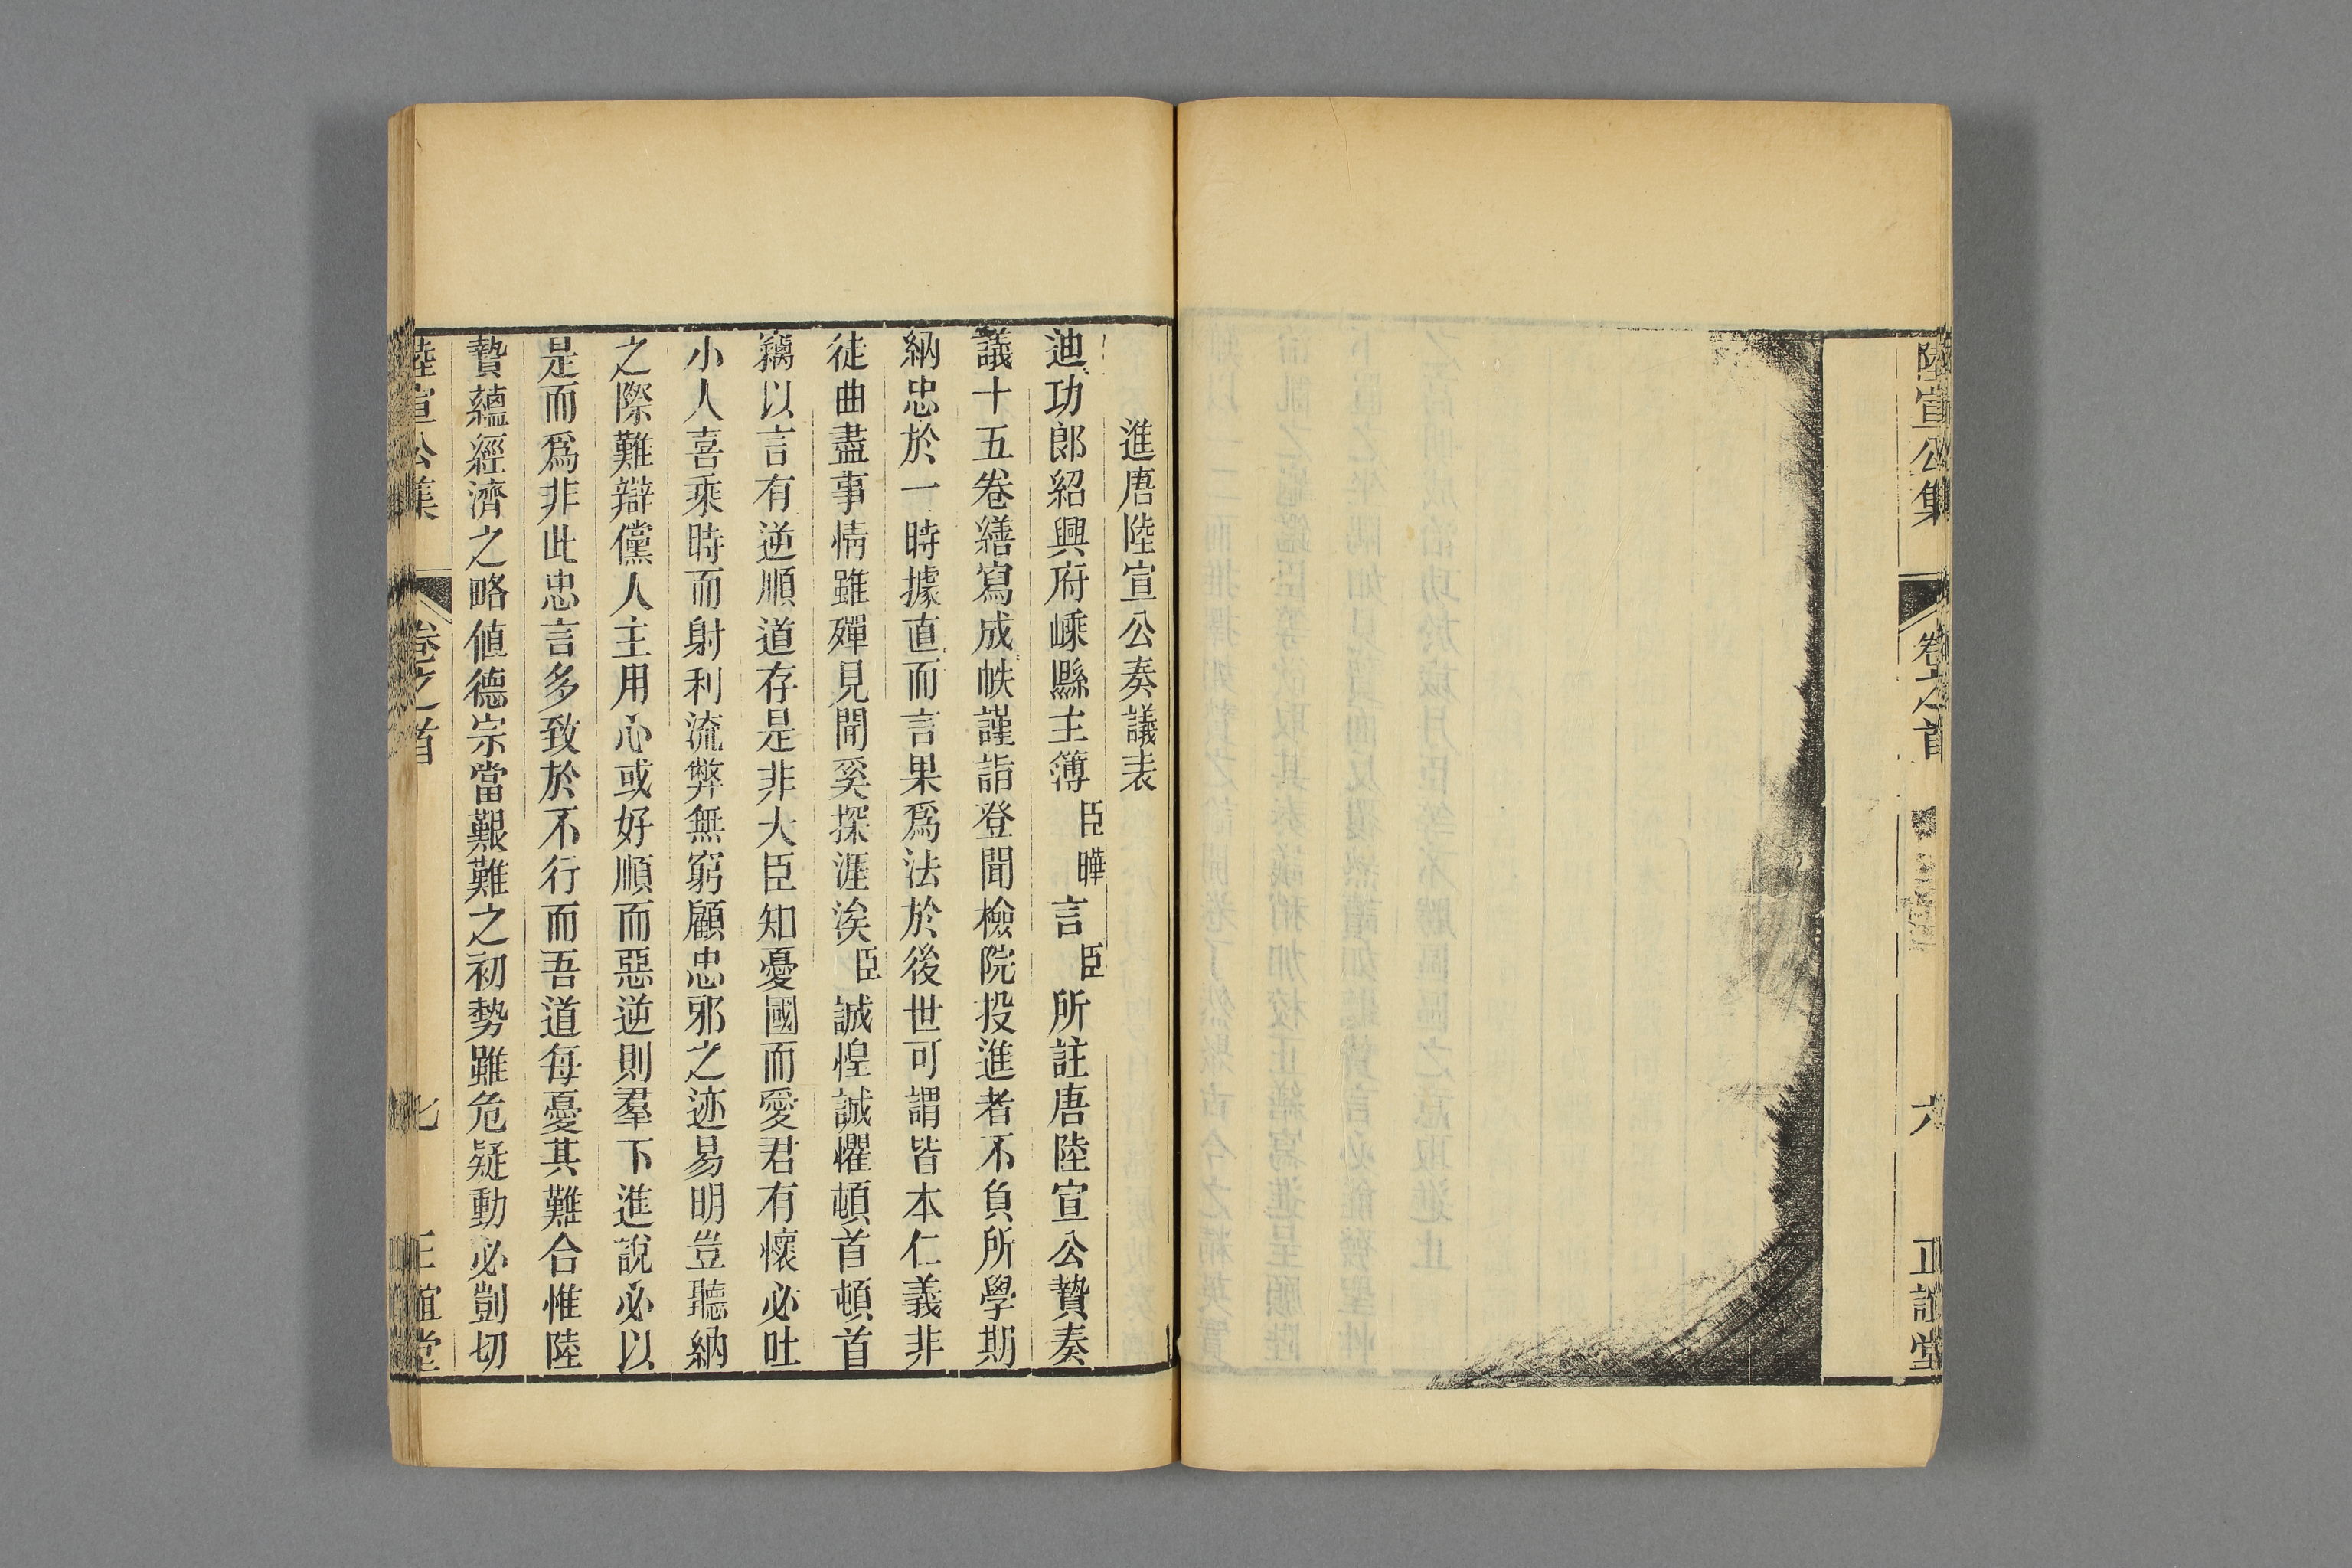 陸宣公集 卷之首 六 正誼堂
進唐陸宣公奏議表
迪功郎紹興府嵊縣主簿臣曄言臣所註唐陸宣公贄奏
議十五卷繕寫成帙謹詣登聞檢院投進者不負所學期
納忠於一時據直而言果爲法於後世可謂皆本仁義非
徒曲盡事情雖殫見聞奚探涯涘臣誠惶誠懼頓首頓首
竊以言有逆順道存是非大臣知憂國而愛君有懷必吐
小人喜乘時而射利流弊無窮顧忠邪之迹易明豈聽納
之際難辯儻人主用心或好順而惡逆則羣下進說必以
是而爲非此忠言多致於不行而吾道每憂其難合惟陸
贄蘊經濟之略値德宗當艱難之初勢雖危疑動必剴切
陸宣公集 卷之首 七 正誼堂